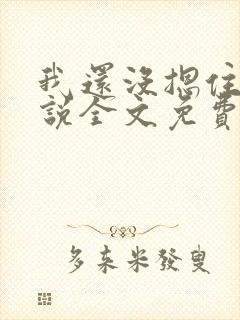 我還沒摁住
說全文免費
多來米發叟